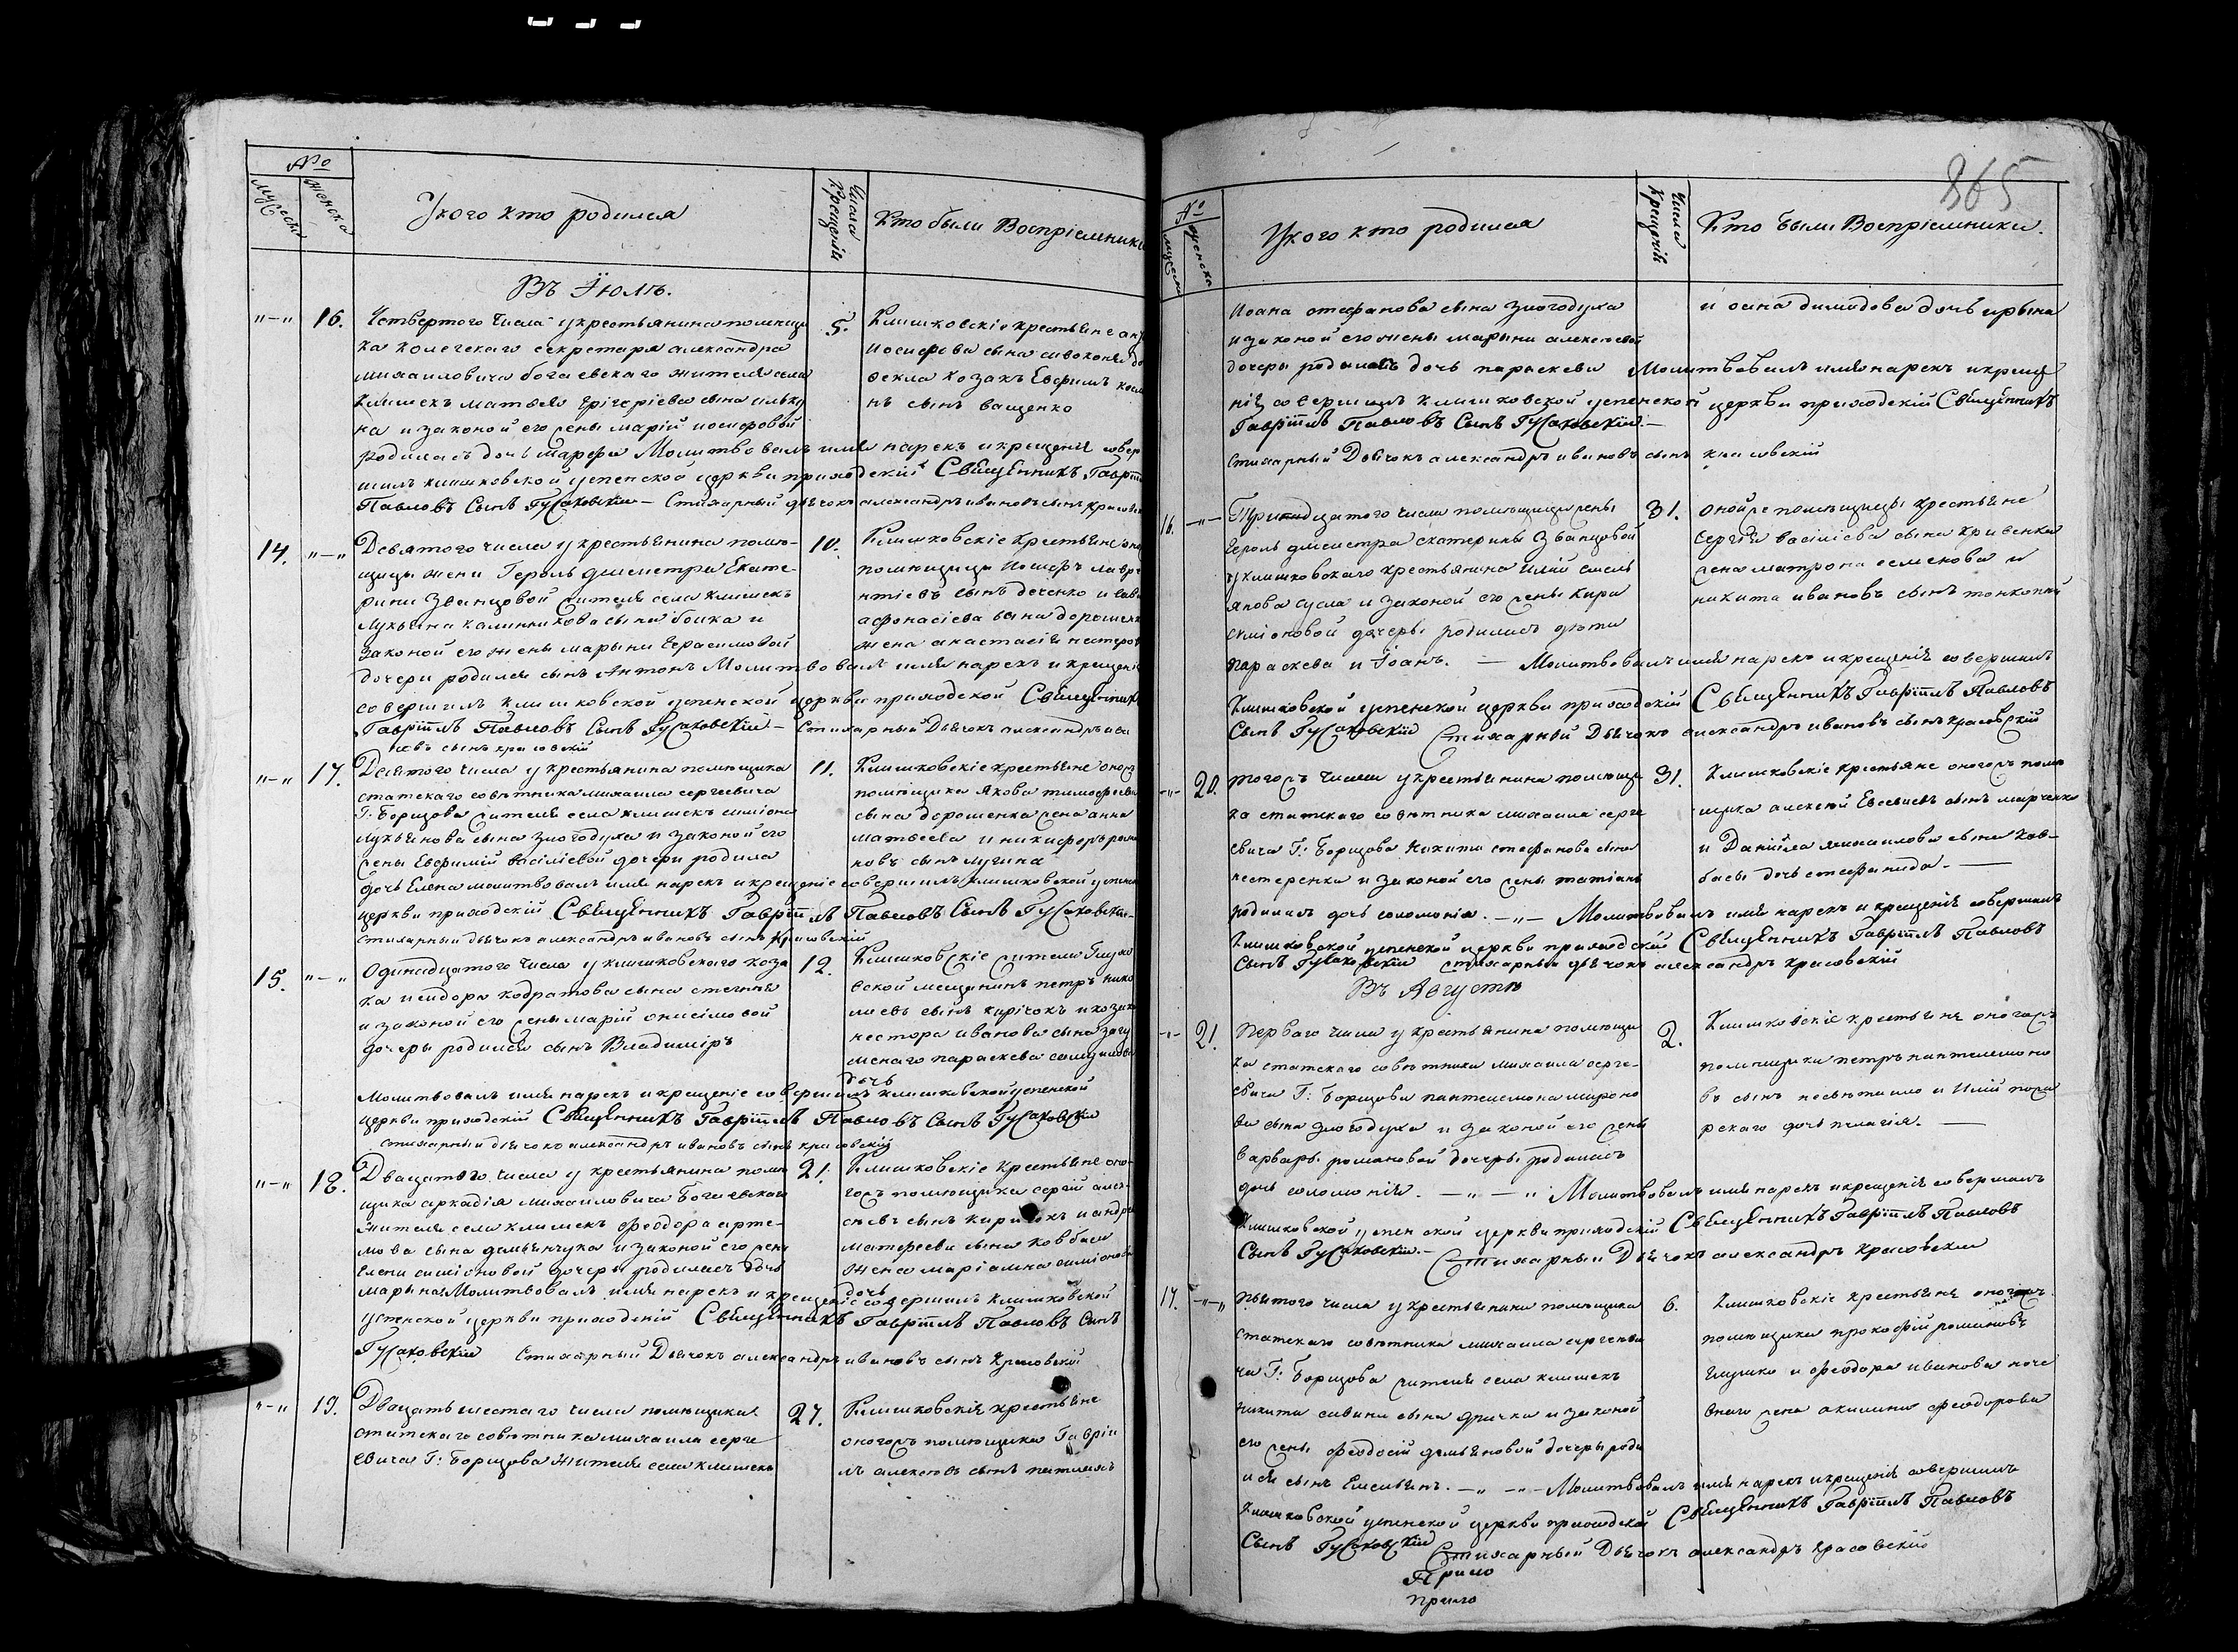 №
мужеска
женска
У кого кто родился
Числа крещенія
Кто были Воспріемники
Въ Іюлѣ.
"–" 16.
Четвертого числа у крестьянина помещи
ка колегскаго секретаря александра
михаиловича богаевскаго жителя села
клишекъ матвея григориева сына
на и законой его жены марій иосифовой
родилась дочь марфа Молитвовалъ имя нарекъ и крещеніе совер
шилъ клишковской успенской церкви приходскій Священникъ Гавріилъ
Павловъ Сынъ Гусаковскій – Стихарный дьячокъ александръ ивановъ сынъ красовс
5.
Клишковскіе крестьяне
иосифова сына сивоконя до
фекла козакъ Евфимъ
нъ сынъ ващенко
14. "–"
Девятого числа у крестьянина помѣ-
щицы жени Героль дмистра Екате-
рини Званцовой жителя села клишекъ
лукьяна калинникова сына бойка и
законой его жены марыни герасимовой
дочери родился сынъ Антонъ Молитвовалъ имя нарекъ и крещеніе
совершилъ клишковской успенской церкви приходской Священникъ
Гавріилъ Павловъ Сынъ Гусаковскій – Стихарный Дьячокъ александръ ива
новъ сынъ красовскій
10.
Клишковскіе крестьяне
помещицы иосифъ лавре
нтіевъ сынъ деченко и
афонасіева сына дорошенка
жена анастасія нестеров
"–" 17.
Десятого числа у крестьянина помѣщика
статскаго совѣтника михаила сергеевича
Г: Борщова жителя села клишекъ симіона
лукьянова сына злогодуха и законой его
жены Евфимій василіевой дочери родила
дочь Елена молитвовалъ имя нарекъ и крещеніе совершилъ клишковской успенск
церкви приходскій Священникъ Гавріилъ Павловъ Сынъ Гусаковскій –
стихарный дьячокъ александръ ивановъ сынъ красовскій
11.
Клишковскіе крестьяне оногожъ
помѣщика Якова тимофеева
сына дорошенка жена анна
матвеева и никифоръ рома
новъ сынъ лугина
15. "–"
Одинадцатого числа у клишковскаго коза
ка исидора кодратова сына
и законой его жены марій онисимовой
дочеры родился сынъ Владимиръ
Молитвовалъ имя нарекъ и крещеніе совершилъ клишковской успенской
церкви приходскій Священникъ Гавріилъ Павловъ Сынъ Гусаковскій
стихарный дьячокъ александръ ивановъ сынъ красовскій
12.
Клишковскіе жители Глухо
вской мещанинъ петръ нико
лаевъ сынъ кирічокъ и козака
нестора иванова сына
параскева
дочь
"–" 18.
Двацатого числа у крестьянина помѣ
щика аркадія михаиловича Богаевскаго
жителя села клишекъ феодора арте-
мова сына демьянчука и законой его жени
Елены симіоновой дочеры родилась дочь
марына Молитвовалъ имя нарекъ и крещеніе совершилъ клишковской
успенской церкви приходскій Священникъ Гавріилъ Павловъ Сынъ
Гусаковскій Стихарный Дьячокъ александръ ивановъ сынъ красовской
21.
Клишковскіе крестьяне оно-
гожъ помѣщика сергій алек-
сѣевъ сынъ киричокъ и андрея
матфеева сына ковбаси
жена маріамна симіонова
дочь
"–" 19.
Двацать шестаго числа помѣщика
статскаго совѣтника михаила серге
евича Г: Борщова жителя села клишекъ
27.
Клишковскія крестьяне
оногожъ помѣщика Гавріи
лъ алексеевъ сынъ
865
№
мужеска
женска
У кого кто родился
Числа Крещенія
Кто были Воспріемники.
Иоана стефанова сына злогодуха
и законой его жены марыни алексеевой
дочеры родилась дочь параскева Молитвовалъ имя нарекъ и креще
ніе совершилъ клишковской успенской церкви приходскій Священникъ
Гавріилъ Павловъ Сынъ Гусаковскій –
стихарный Дьячокъ александръ ивановъ сынъ красовскій
и оана димидова дочь ирына
16. –"–
Тридцатого числа помѣщицы жены
Героль дмистра екатерины Званцовой
у клишковскаго крестьянина Илій емель
янова сусла и законой его жены кира
симіоновой дочеры родились дѣти
параскева и Іоанъ. – Молитвовалъ имя нарекъ и крещеніе совершилъ
Клишковской успенской церкви приходскій Священникъ Гавріилъ Павловъ
Сынъ Гусаковскій Стихарный Дьячокъ александръ ивановъ сынъ красовскій
31.
оной же помѣщицы крестьяне
Сергія василіева сына кривенка
жена матрона семенова и
никита ивановъ сынъ
–"– 20.
тогожъ числа у крестьянина помѣщи
ка статскаго совѣтника михаила серге
евича Г: Борщова Никиты стефанова сына
нестеренка и законой его жены татіаны
родилась дочь соломонія. –"– Молитвовалъ имя нарекъ и крещеніе совершилъ
Клишковской успенской церкви приходской Священникъ Гавріилъ Павловъ
Сынъ Гусаковскій стихарный дьячокъ александръ красовскій
31.
Клишковскіе крестьяне оногожъ помѣ
щика алексей Евсеиевъ сынъ марченко
и Даниила михаилова сына ков-
басы дочь стефанида. –
Въ Августѣ
–"– 21.
Перваго числа у крестьянина помѣщи
ка статскаго совѣтника михаила серге-
евича Г: Борщова пантелемона мироно
ва сына злогодуха и законой его жены
варвары романовой дочеры родилась
дочь соломонія. –"–"– Молитвовалъ имя нарекъ и крещеніе совершилъ
Клишковской успенской церкви приходскій Священникъ Гавріилъ Павловъ
Сынъ Гусаковскій. – Стихарный Дьячокъ александръ красовскій
2.
Клишковскіе крестьяне оногожъ
помѣщика петръ пантелемоно
въ сынъ и Илій
дочь пелагія. –
17. –"–
Пятого числа у крестьянина помѣщика
статскаго совѣтника михаила сергееви
ча Г: Борщова жителя села клишекъ
никиты савина сына и законой
его жены феодосій демьяновой дочеры роди
лся сынъ Емельянъ. –"–"– Молитвовалъ имя нарекъ и крещеніе совершилъ
Клишковской успенской церкви приходской Священникъ Гавріилъ Павловъ
Сынъ Гусаковскій Стихарный Дьячокъ александръ красовскій
6.
Клишковскіе крестьяне оногожъ
помѣщика прокофій романовъ
и феодора иванова
жена акилина феодорова